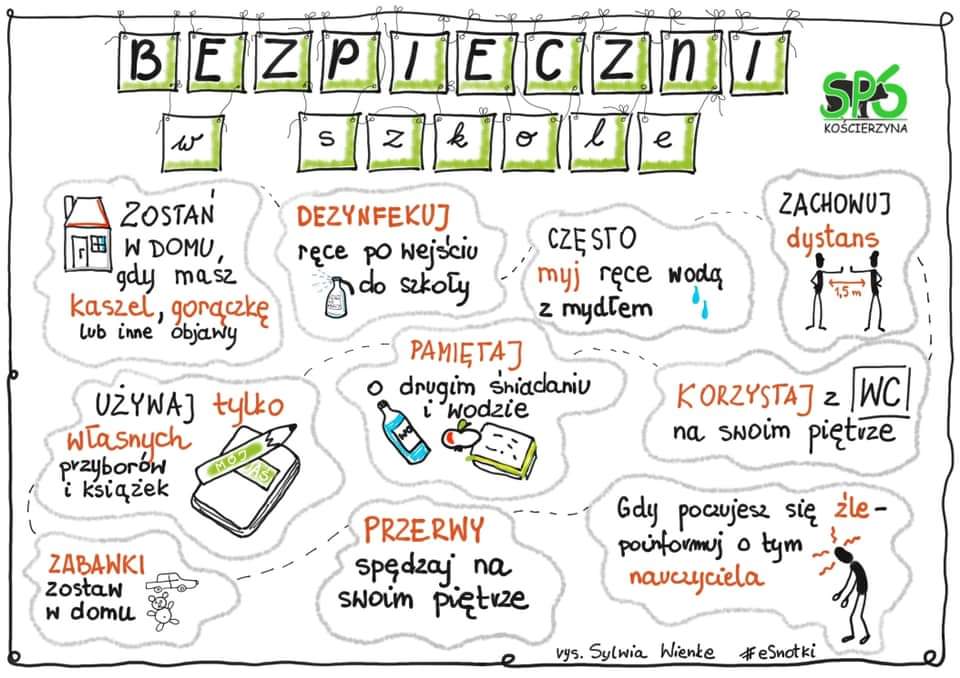 BEZPIECZNI
w szkole
SP6
KOŚCIERZYNA
ZOSTAŃ
W DOMU,
gdy masz
kaszel, gorączkę
lub inne objawy
DEZYNFEKUJ
ręce po wejściu
do szkoły
CZĘSTO
myj ręce wodą
z mydłem
ZACHOWUJ
dystans
1,5 m
UŻYWAJ tylko
własnych
przyborów
i książek
MÓJ
PAMIĘTAJ
o drugim śniadaniu
i wodzie
KORZYSTAJ z WC
na swoim piętrze
ZABAWKI
zostaw
w domu
PRZERWY
spędzaj na
swoim piętrze
Gdy poczujesz się źle -
poinformuj o tym
nauczyciela
rys. Sylwia Wienke #eSnotki